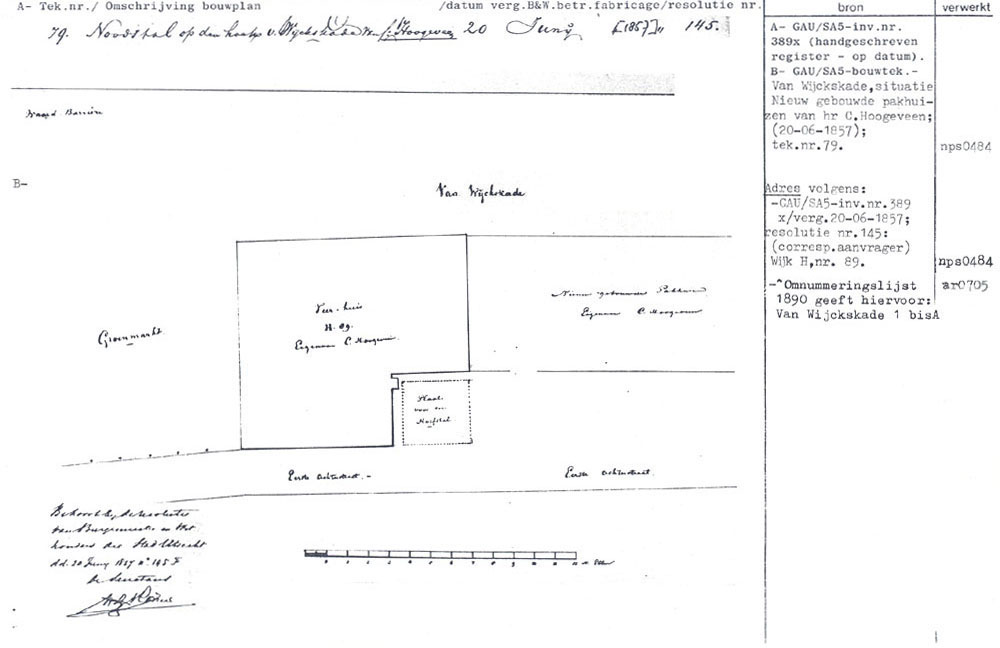 A- Tek.nr./ Omschrijving bouwplan /datum verg.B&W.betr.fabricage/resolutie nr.
79. Noodstal op den hoek v. Wijckskade C. Hoogeveen 20 Junij [1857] 145.
bron
verwerkt
A- GAU/SA5-inv.nr.
389x (handgeschreven
register - op datum).
B- GAU/SA5-bouwtek.-
Van Wijckskade,situatie
Nieuw gebouwde pakhui-
zen van hr C.Hoogeveen;
(20-06-1857);
tek.nr.79. nps0484
Adres volgens:
-GAU/SA5-inv.nr.389
x/verg.20-06-1857;
resolutie nr.145:
(corresp.aanvrager)
Wijk H,nr. 89. nps0484
-^Omnummeringslijst ar0705
1890 geeft hiervoor:
Van Wijckskade 1 bisA
Waard Barrière
B-
Van Wijckskade
Groenmarkt
Veer-huis
H. 89.
Eigenaar C. Hoogeveen
Nieuw gebouwde Pakhuizen
Eigenaar C. Hoogeveen
Plaats
voor den
Noodstal
Eerste achterstraat.-
Eerste achterstraat.
Behoort bij de resolutie
van Burgemeester en Wet
houders der Stad Utrecht
dd. 20 Junij 1857 N° 145 F
De Secretaris